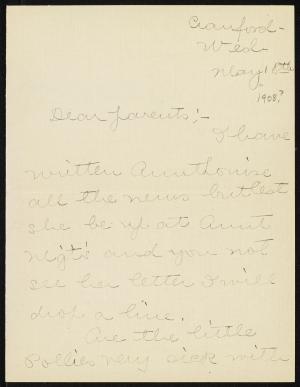 Cranford-
Wed-
May 18th
1908?
Dear parents;-
I have
written Aunt Louise
all the news but lest
she be up at Aunt
and you not
see her letter I will
drop a line.
Are the little
Pollies very sick with